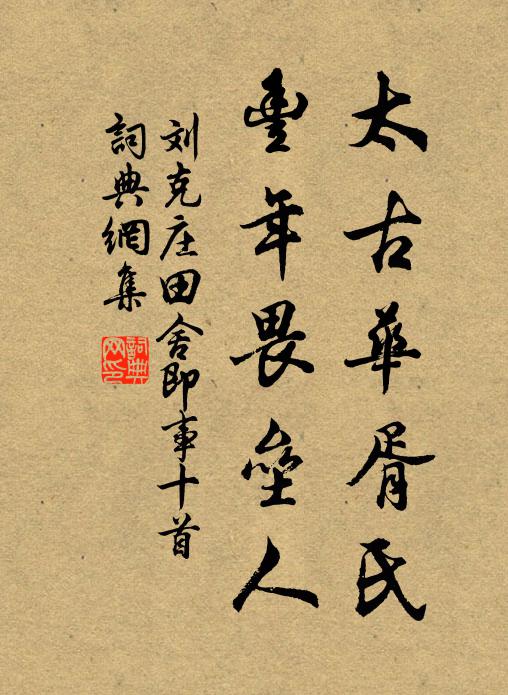 太古華胥氏
豊年畏壘人
刘克庄田舍即事十首
詞典網集
詞典
网印